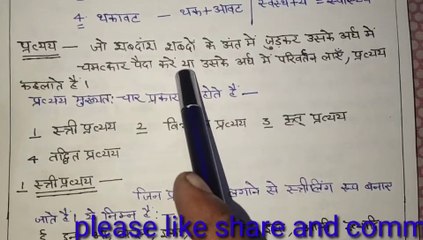 4 थकावट — थक + आवट
प्रत्यय — जो शब्दांश शब्दों के अंत में जुड़कर उसके अर्थ में
चमत्कार पैदा करे या उसके अर्थ में परिवर्तन लाएँ, प्रत्यय
कहलाते हैं।
प्रत्यय मुख्यतः चार प्रकार होते हैं —
1 स्त्री प्रत्यय 2 प्रत्यय 3 कृत् प्रत्यय
4 तद्धित प्रत्यय
1 स्त्रीप्रत्यय —
जिन लगाने से स्त्रीलिंग रूप बनाए
जाते हैं। वे निम्न हैं :-
please like share and comm